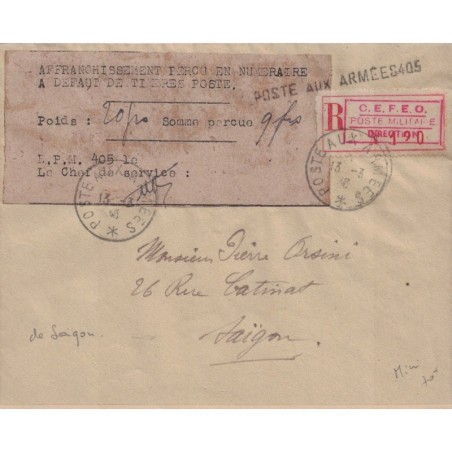 AFFRANCHISSEMENT PERCU EN NUMERAIRE
A DEFAUT DE TIMBRES POSTE.
POSTE AUX ARMEES 405
Poids : 20 grs Somme percue 9 frs
R
C.E.F.E.O.
POSTE MILITAIRE
DIRECTION
B.P.M. 405 le
Le Chef de service :
POSTE AUX ARMEES *
13 -3
POSTE AUX ARMEES *
13 -3
Monsieur Pierre Orsini
26 Rue Catinat
Saigon.
de Saigon